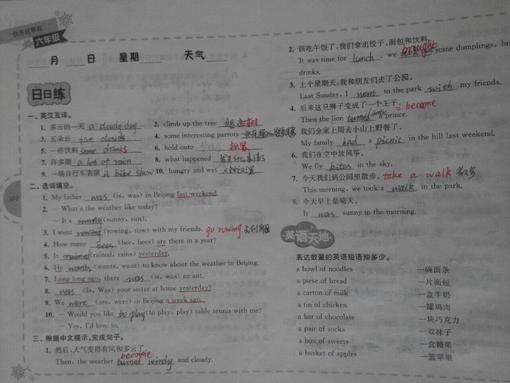 快乐过寒假
六年级
月 日 星期 天气
日日练
一、英汉互译。
1. 多云的一天 a cloudy day
2. 五朵云 five clouds
5. 一些饮料 some drinks
7. 许多雨 a lot of rain
9. 一场自行车表演 a bike show
2. climb up the tree
4. some interesting parrots
6. hold onto 抓紧
8. what happened
10. hungry and wet
二、选词填空。
1. My father was (is, was) in Beijing last weekend.
2. - What's the weather like today?
- It's sunny (sunny, sun).
3. I went rowing (rowing, row) with my friends. go rowing 去划船
4. How many bees (bee, bees) are there in a year?
5. It rained (rained, rains) yesterday.
6. He wants (wants, want) to know about the weather in Beijing.
7. Long long ago, there was (is, was) an ant.
8. was (Is, Was) your sister at home yesterday?
9. We were (are, were) in Beijing a week ago.
10. - Would you like to play (to play, play) table tennis with me?
- Yes, I'd love to.
三、根据中文提示,完成句子。
1. 然后,天气变得有风和多云了。
become
Then, the weather turned windy and cloudy.
2. 该吃午饭了,我们拿出饺子,面包和饮料。
brought
It was time for lunch, we some dumplings,
drinks.
3. 上个星期天,我和朋友们去了公园。
Last Sunday, I went to the park with my friends.
4. 后来这只狮子变成了一个王子。
become
Then the lion turned prince.
5. 我们全家上周去小山上野餐了。
My family had a picnic in the hill last weekend.
6. 我们在空中放风筝。
We fly in the sky.
7. 今天我们到公园里散步。 take a walk 散步
This morning, we took a walk in the park.
8. 今天早上是晴天。
It was sunny in the morning.
英语天地
表达数量的英语短语知多少。
a bowl of noodles 一碗面条
a piese of bread 一片面包
a carton of milk 一盒牛奶
a tin of chicken 一罐鸡肉
a bar of chocolate 一块巧克力
a pair of socks 一双袜子
a box of sweets 一盒糖果
a busket of apples 一篮苹果